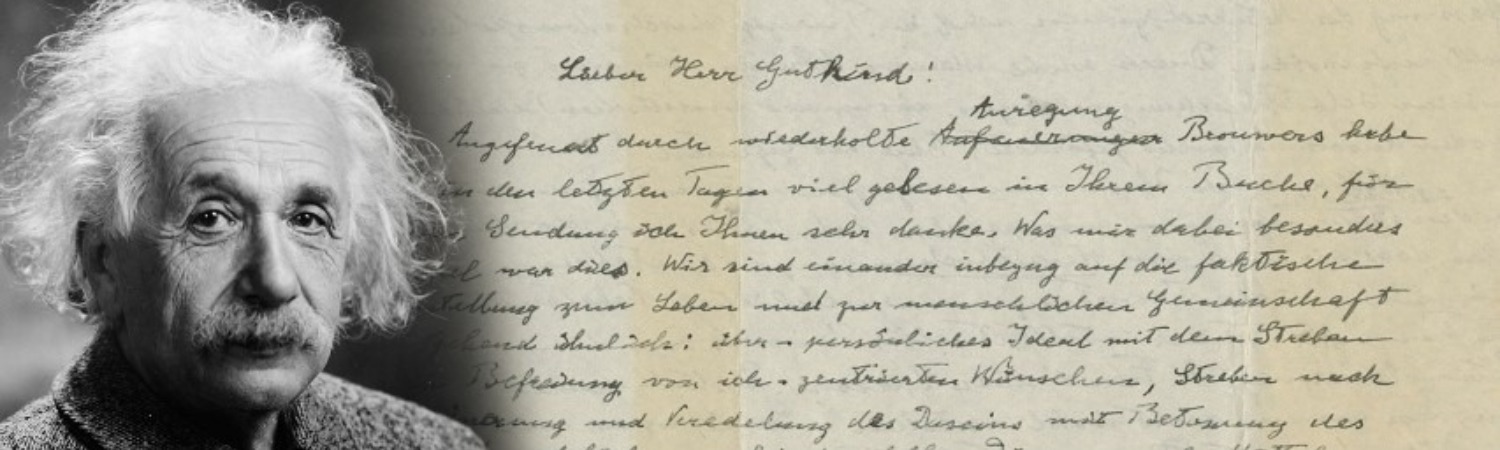 Lieber Herr Gutkind!
Anregung
Angefeuert durch wiederholte Aufmunterungen Brouwers habe
in den letzten Tagen viel gelesen in Ihrem Buche, für
Sendung ich Ihnen sehr danke. Was mir dabei besonders
war dies. Wir sind einander inbezug auf die faktische
zum Leben und zur menschlichen Gemeinschaft
ähnlich: über-persönliches Ideal mit dem Streben
Befreiung von ich-zentrierten Wünschen, Streben nach
und Veredelung des Daseins mit Betonung des